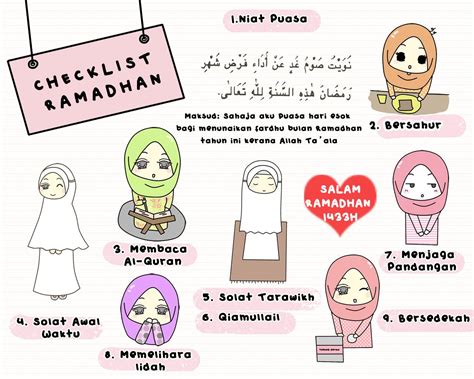 CHECKLIST
RAMADHAN
1.Niat Puasa
نَوَيْتُ صَوْمَ غَدٍ عَنْ أَدَاءِ فَرْضِ شَهْرِ
رَمَضَانَ هَذِهِ السَّنَةِ لِلّٰهِ تَعَالَى.
Maksud: Sahaja aku Puasa hari esok
bagi menunaikan fardhu bulan Ramadhan
tahun ini kerana Allah Ta'ala
2. Bersahur
3. Membaca
Al-Quran
4. Solat Awal
Waktu
5. Solat Tarawikh
6. Qiamullail
SALAM
RAMADHAN
1433H
7. Menjaga
Pandangan
8. Memelihara
lidah
9. Bersedekah